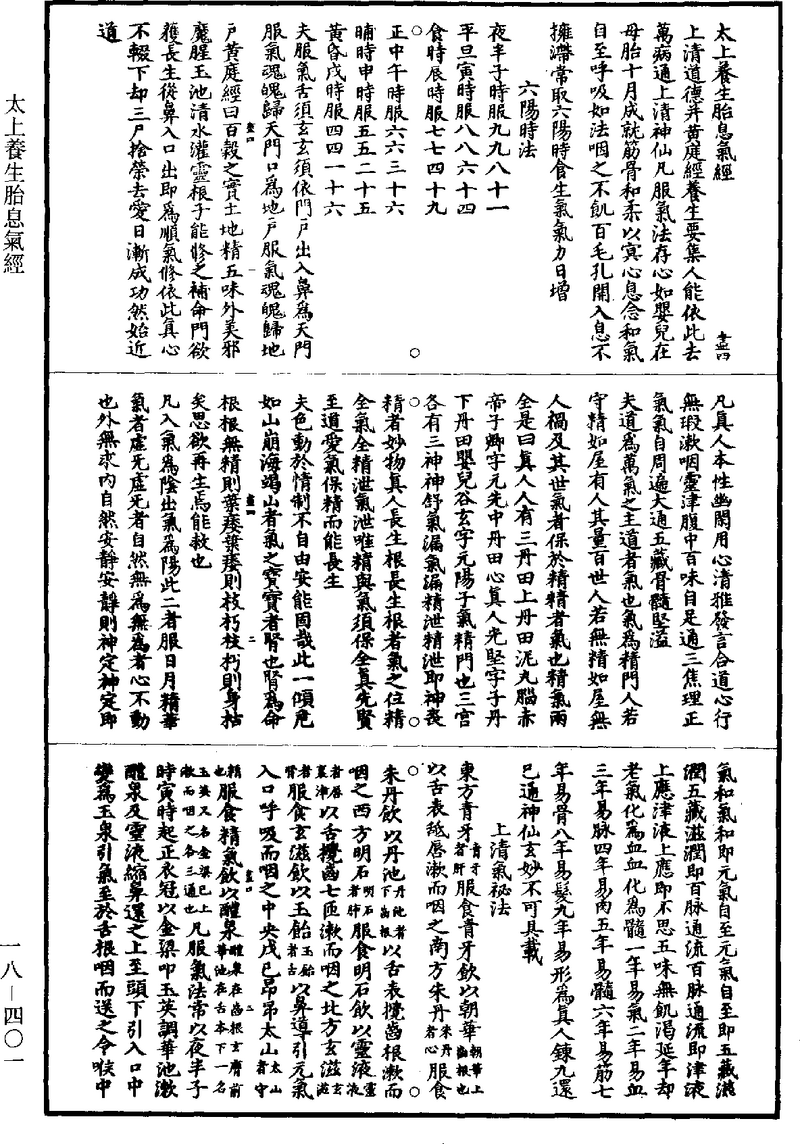 太上養生胎息氣經
上清道德并黃庭經養生要集人能依此去
萬病通上清神仙凡服氣法存心如嬰兒在
母胎十月成就筋骨和柔以冥心息念和氣
自至呼吸如法咽之不飢百毛孔開入息不
擁滯常取六陽時食生氣氣力日增
六陽時法
夜半子時服九九八十一
平旦寅時服八八六十四
食時辰時服七七四十九
正中午時服六六三十六
晡時申時服五五二十五
黃昏戌時服四四一十六
夫服氣舌須玄玄須依門戶出入鼻爲天門
服氣魂魄歸天門口爲地戶服氣魂魄歸地
戶黃庭經曰百穀之實土地精五味外美邪
魔腥玉池清水灌靈根子能修之補命門欲
獲長生從鼻入口出即爲順氣修依此真心
不輟下却三尸捨榮去愛日漸成功然始近
道
凡真人本性幽閑用心清雅發言合道心行
無瑕漱咽靈津腹中百味自足通三焦理正
氣氣自周遍大通五藏骨髓堅溢
夫道爲萬氣之主道者氣也氣爲精門人若
守精如屋有人其量百世人若無精如屋無
人禍及其世氣者保於精精者氣也精氣兩
全是曰真人人有三丹田上丹田泥丸腦赤
帝子卿字元先中丹田心真人光堅字子丹
下丹田嬰兒谷玄字元陽子氣精門也三宮
各有三神神舒氣漏氣漏精泄精泄即神喪
精者妙物真人長生根長生根者氣之位精
全氣全精泄氣泄唯精與氣須保全真先賢
至道愛氣保精而能長生
夫色動於情制不自由安能固哉此一傾危
如山崩海竭山者氣之寶寶者腎也腎爲命
根根無精則葉萎葉萎則枝朽枝朽則身枯
矣思欲再生焉能救也
凡入氣爲陰出氣爲陽此二者服日月精華
氣者虛无虛无者自然無爲無爲者心不動
也外無求內自然安靜安靜則神定神定即
氣和氣和即元氣自至元氣自至即五藏滋
潤五藏滋潤即百脉通流百脉通流即津液
上應津液上應即不思五味無飢渴延年却
老氣化爲血血化爲髓一年易氣二年易血
三年易脉四年易肉五年易髓六年易筋七
年易骨八年易髮九年易形爲真人鍊九還
已通神仙玄妙不可具載
上清氣祕法
東方青牙青牙者肝服食青牙飲以朝華朝華上齒根也
以舌表舐唇漱而咽之南方朱丹朱丹者心服食
朱丹飲以丹池丹池者下齒根以舌表攪齒根漱而
咽之西方明石明石者肺服食明石飲以靈液靈液者唇裏津
以舌攪齒七匝漱而咽之北方玄滋玄滋者腎
服食玄滋飲以玉飴玉飴者舌以鼻導引元氣
入口呼吸而咽之中央戊己昂昂太山太山者守精
服食精氣飲以醴泉醴泉在齒根玄膺前也華池在舌本下一名玉英又名金梁已上漱而咽之各三通也
凡服氣法常以夜半子
時寅時起正衣冠以金梁叩玉英調華池漱
醴泉及靈液縮鼻還之上至頭下引入口中
變爲玉泉引氣至於舌根咽而送之令喉中
太上養生胎息氣經
一八-四〇一